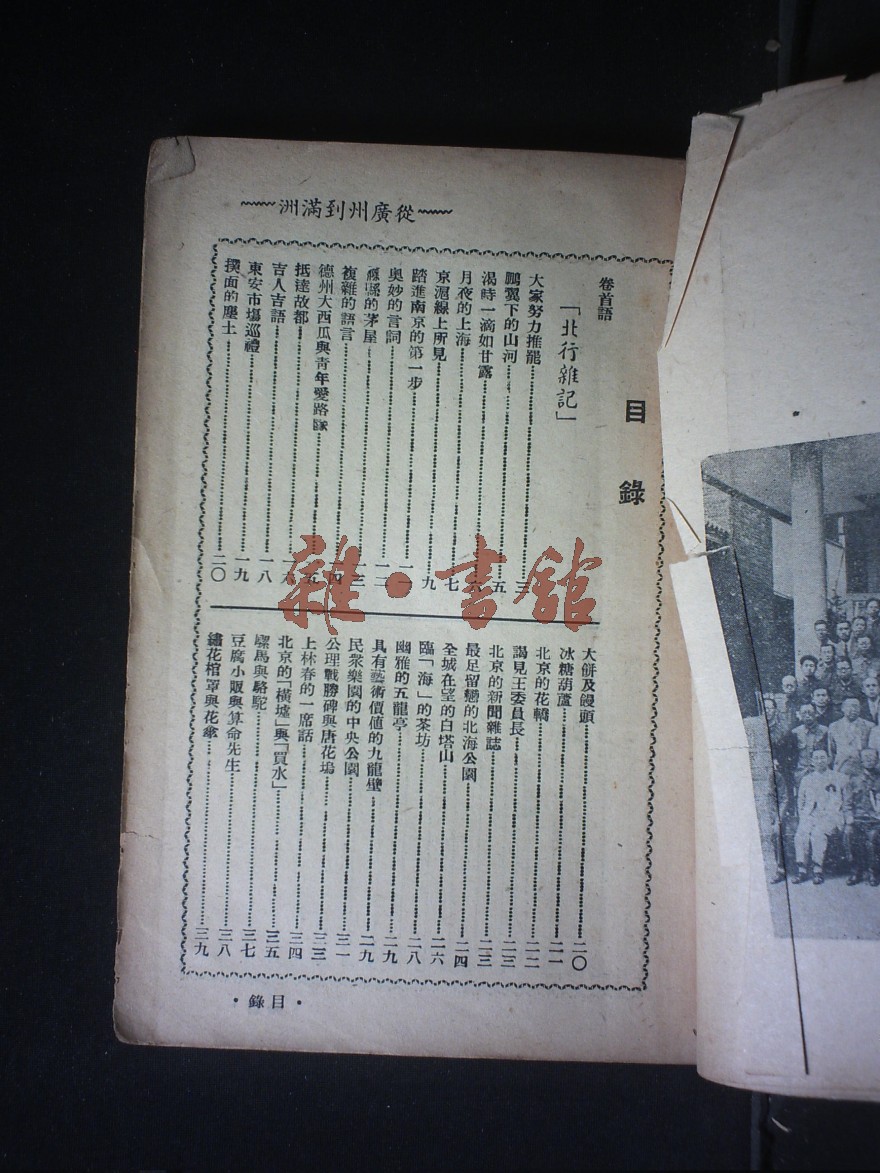 從廣州到滿洲
目錄
卷首語
「北行雜記」
大家努力推罷 三
鵬翼下的山河 五
渴時一滴如甘露
月夜的上海 七
京滬線上所見 九
踏進南京的第一步
奧妙的言詞 一二
的茅屋
複雜的語言
德州大西瓜與青年愛路隊
抵達故都
吉人吉語 一八
東安市場巡禮 一九
撲面的塵土 二〇
大餅及饅頭 二〇
冰糖葫蘆 二一
北京的花轎 二二
謁見王委員長 二三
北京的新聞雜誌 二三
最足留戀的北海公園 二四
全城在望的白塔山 二六
臨「海」的茶坊 二八
幽雅的五龍亭 二九
具有藝術價值的九龍壁 二九
民衆樂園的中央公園 三一
公理戰勝碑與唐花塢 三三
上林春的一席話 三四
北京的「橫墟」與「買水」 三五
騾馬與駱駝 三七
豆腐小販與算命先生 三八
繡花棺罩與花傘 三九
·目錄·
雜·書館